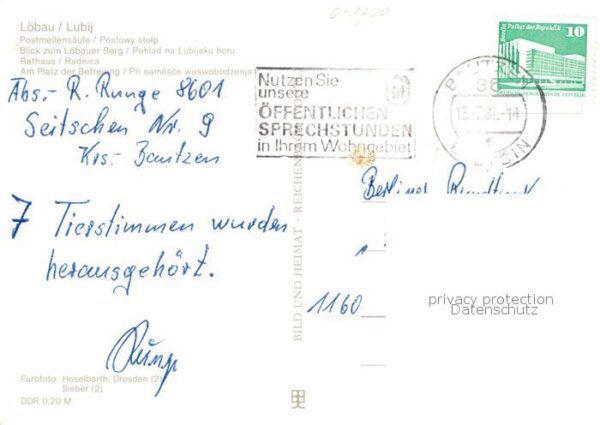 0-1700
Löbau / Lubij
Postmeilensäule / Póstowy stołp
Blick zum Löbauer Berg / Pohlad na Lubijsku horu
Rathaus / Radnica
Am Platz der Befreiung / Při naměsće wuswobodzenja
Abs.- R. Runge 8601
Seitschen Nr. 9
Krs.- Bautzen
7 Tierstimmen wurden
herausgehört.
Runge
Farbfoto: Heselbarth, Dresden (2)
Sieber (2)
DDR 0,20 M
BILD UND HEIMAT · REICHENBACH
Nutzen Sie
unsere
ÖFFENTLICHEN
SPRECHSTUNDEN
in Ihrem Wohngebiet
BAUTZEN
86
-14
BUDYŠIN
Berlin Palast der Republik
10
Berliner Rundfunk
1160
privacy protection
Datenschutz